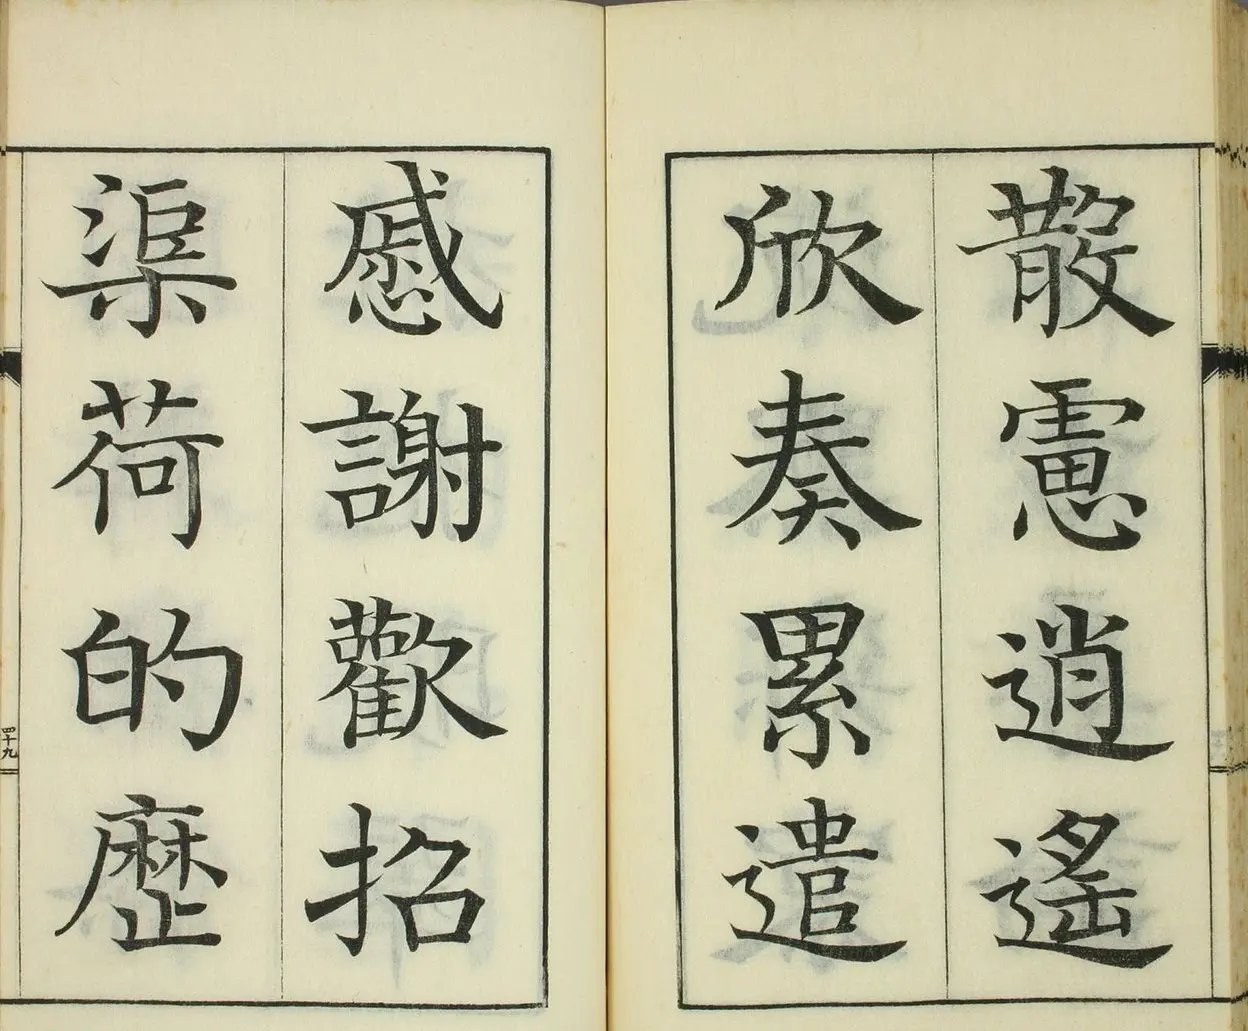 散慮逍遙
欣奏累遣
慼謝歡招
渠荷的歷
四十九